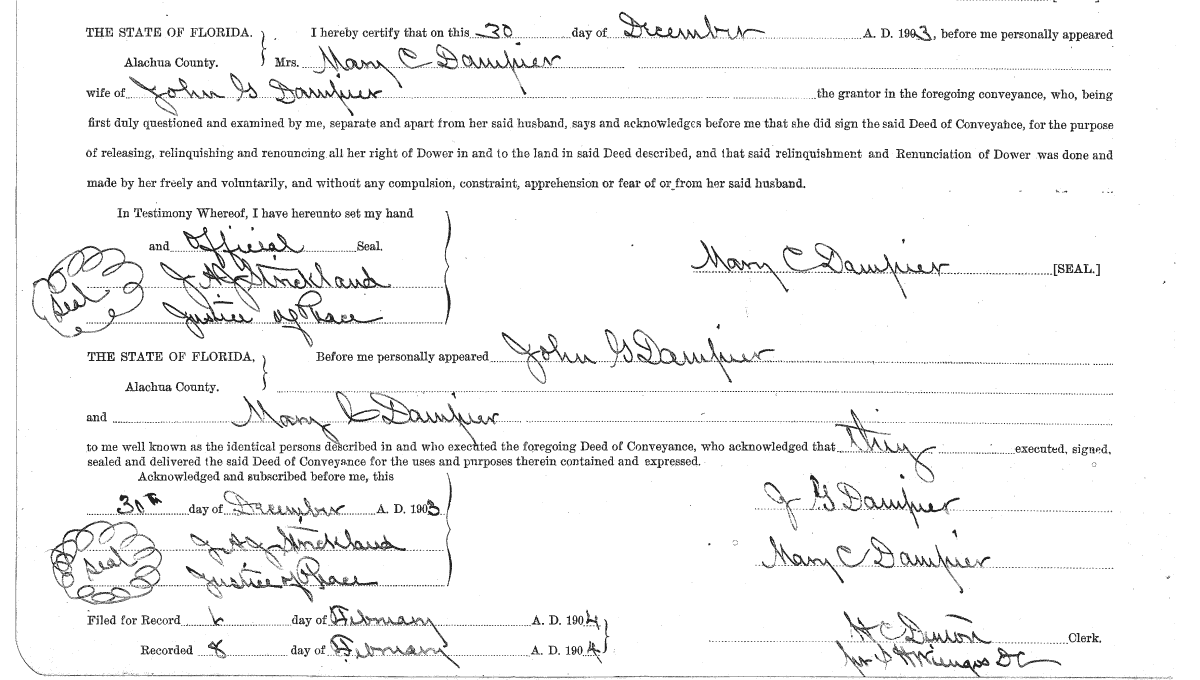 THE STATE OF FLORIDA. I hereby certify that on this 30 day of December A. D. 1903, before me personally appeared
Alachua County. Mrs. Mary C Dampier
wife of John G Dampier the grantor in the foregoing conveyance, who, being
first duly questioned and examined by me, separate and apart from her said husband, says and acknowledges before me that she did sign the said Deed of Conveyance, for the purpose
of releasing, relinquishing and renouncing all her right of Dower in and to the land in said Deed described, and that said relinquishment and Renunciation of Dower was done and
made by her freely and voluntarily, and without any compulsion, constraint, apprehension or fear of or from her said husband.
In Testimony Whereof, I have hereunto set my hand
and official Seal.
Mary C Dampier [SEAL.]
Seal J A J Strickland
Justice of Peace
THE STATE OF FLORIDA, Before me personally appeared John G Dampier
Alachua County.
and Mary C Dampier
to me well known as the identical persons described in and who executed the foregoing Deed of Conveyance, who acknowledged that they executed, signed,
sealed and delivered the said Deed of Conveyance for the uses and purposes therein contained and expressed.
Acknowledged and subscribed before me, this
30th day of December A. D. 1903
J G Dampier
Seal J A J Strickland
Mary C Dampier
Justice of Peace
Filed for Record 6 day of February A. D. 1904
H C Denton Clerk.
Recorded 8 day of February A. D. 1904
per S H Wienges DC